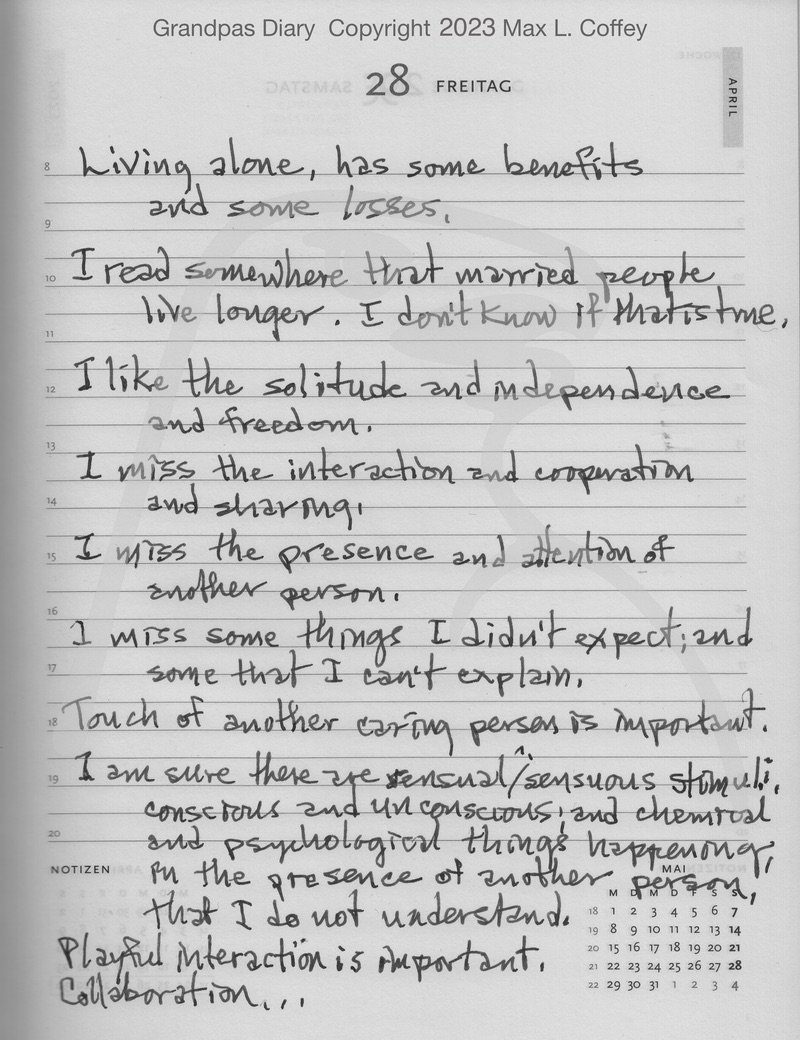 Grandpas Diary Copyright 2023 Max L. Coffey
28 FREITAG
APRIL
8 Living alone, has some benefits
and some losses.
9
10 I read somewhere that married people
live longer. I don't know if that is true.
11
12 I like the solitude and independence
and freedom.
13
I miss the interaction and cooperation
14 and sharing.
15 I miss the presence and attention of
another person.
16
I miss some things I didn't expect; and
17 some that I can't explain.
18 Touch of another caring person is important.
19 I am sure there are sensual/sensuous stimuli,
conscious and unconscious; and chemical
20 and psychological things happening,
NOTIZEN in the presence of another person,
that I do not understand.
Playful interaction is important.
Collaboration...
MAI
M D M D F S S
18 1 2 3 4 5 6 7
19 8 9 10 11 12 13 14
20 15 16 17 18 19 20 21
21 22 23 24 25 26 27 28
22 29 30 31 1 2 3 4